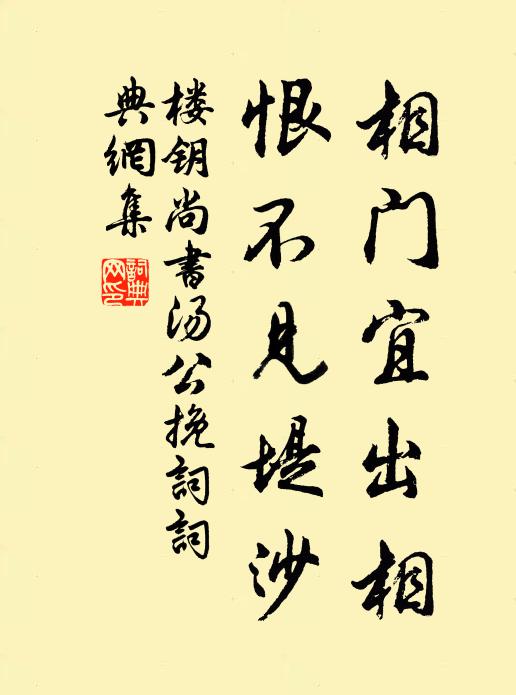 相门宜出相
恨不见堤沙
楼钥尚书汤公挽词词
典網集
詞典網印